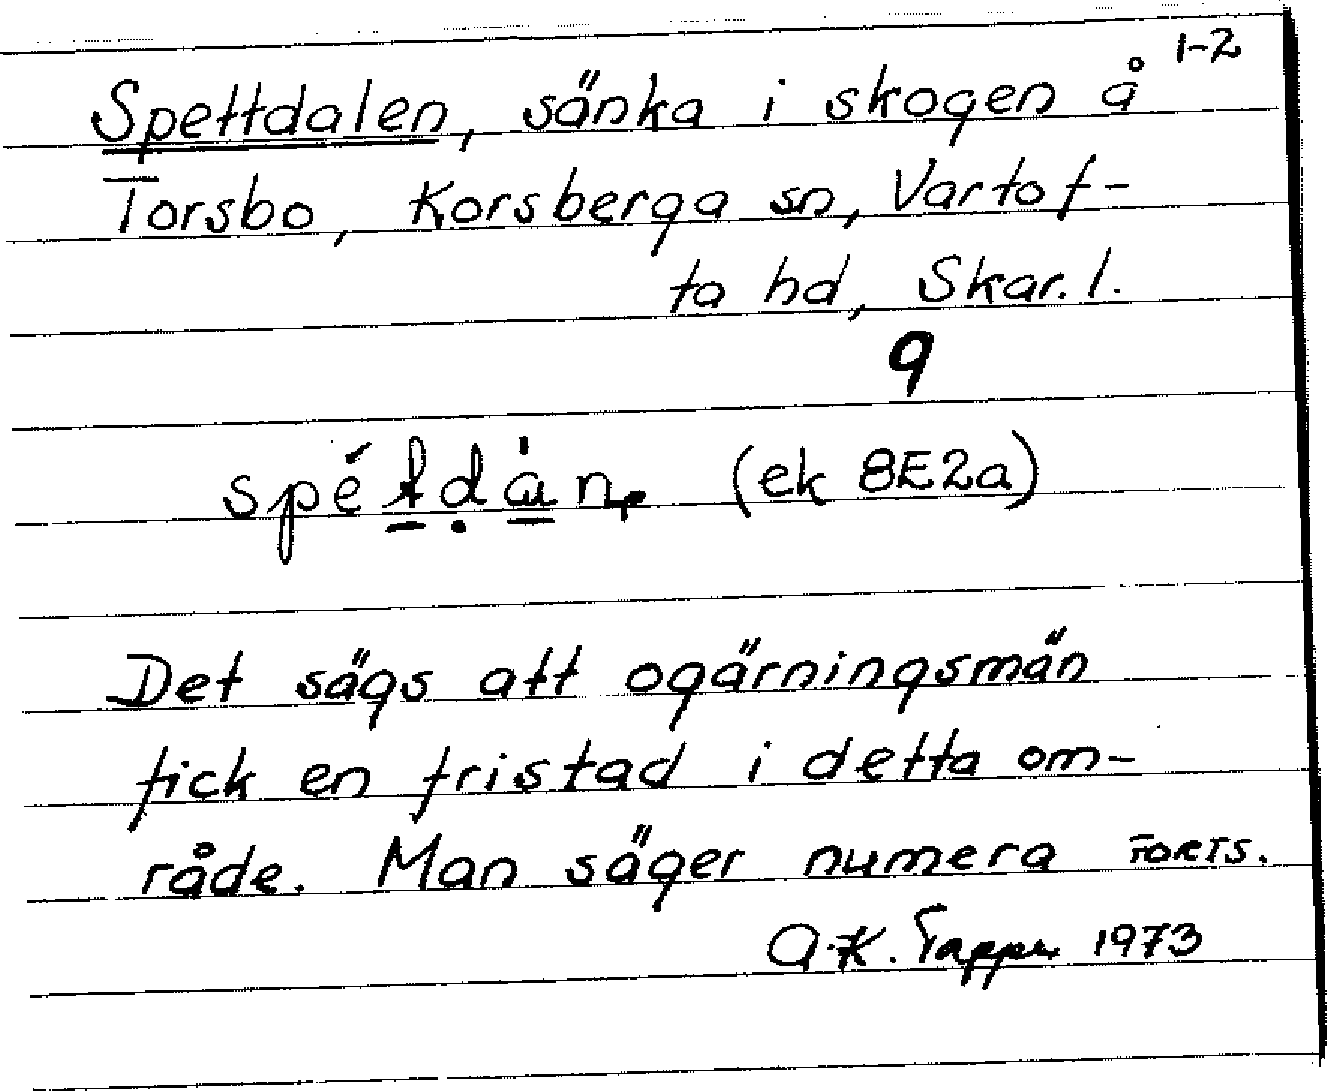 1-2
Spettdalen, sänka i skogen å
Torsbo, Korsberga sn, Vartof-
ta hd, Skar. l.
9
(ek 8E2a)
Det sägs att ogärningsmän
fick en fristad i detta om-
råde. Man säger numera FORTS.
A.K. 1973